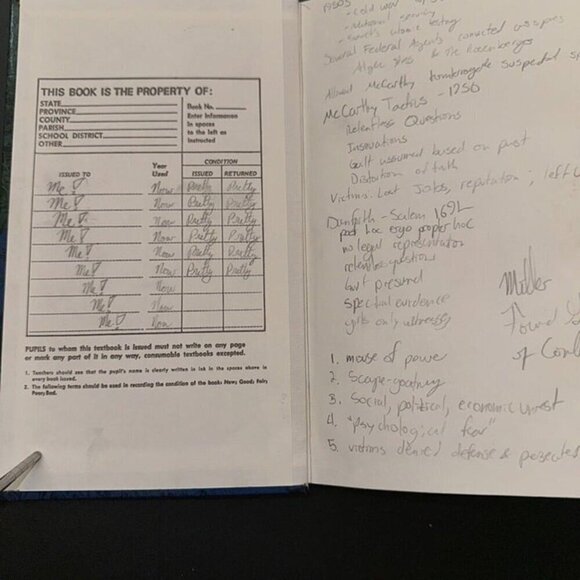 THIS BOOK IS THE PROPERTY OF:
STATE
PROVINCE
COUNTY
PARISH
SCHOOL DISTRICT
OTHER
Book No.
Enter information
in spaces
to the left as
instructed
ISSUED TO
Year
Used
CONDITION
ISSUED
RETURNED
Me! Now Pretty Pretty
Me! Now Pretty Pretty
Me! Now Pretty Pretty
Me! Now Pretty Pretty
Me! Now Pretty Pretty
Me! Now Pretty Pretty
Me! Now
Me! Now
Me! Now
PUPILS to whom this textbook is issued must not write on any page
or mark any part of it in any way, consumable textbooks excepted.
1. Teachers should see that the pupil's name is clearly written in ink in the spaces above in
every book issued.
2. The following terms should be used in recording the condition of the book: New; Good; Fair;
Poor; Bad.
1950s
- Cold war
- National
- Soviets atomic testing
Several Federal Agents convicted as spies
Alger Hiss & the Rosenbergs
Allowed McCarthy to interrogate suspected
McCarthy Tactics - 1950
Relentless Questions
Insinuations
Guilt assumed based on past
Distortion of truth
Victims: Lost Jobs, reputation; left
Danforth - Salem 1692
post hoc ergo propter hoc
no legal representation
relentless questions
Guilt presumed
spectral evidence
girls only witnesses
Miller
Found
of
1. misuse of power
2. Scape-goating
3. Social, political, economic unrest
4. "psychological fear"
5. victims denied defense &